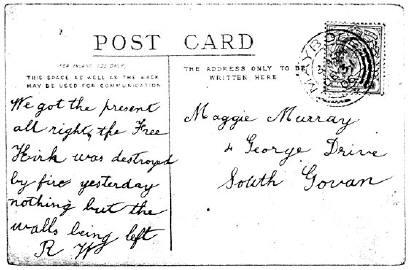 POST CARD
(FOR INLAND USE ONLY)
THIS SPACE AS WELL AS THE BACK
MAY BE USED FOR COMMUNICATION
THE ADDRESS ONLY TO BE
WRITTEN HERE
MAYBOLE
We got the present
all right, the Free
Kirk was destroyed
by fire yesterday
nothing but the
walls being left
R W
Maggie Murray
4 George Drive
South Govan